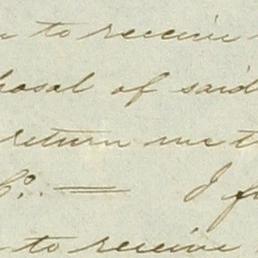 to receive
posal of said
return me t
Co. = I f
to receive